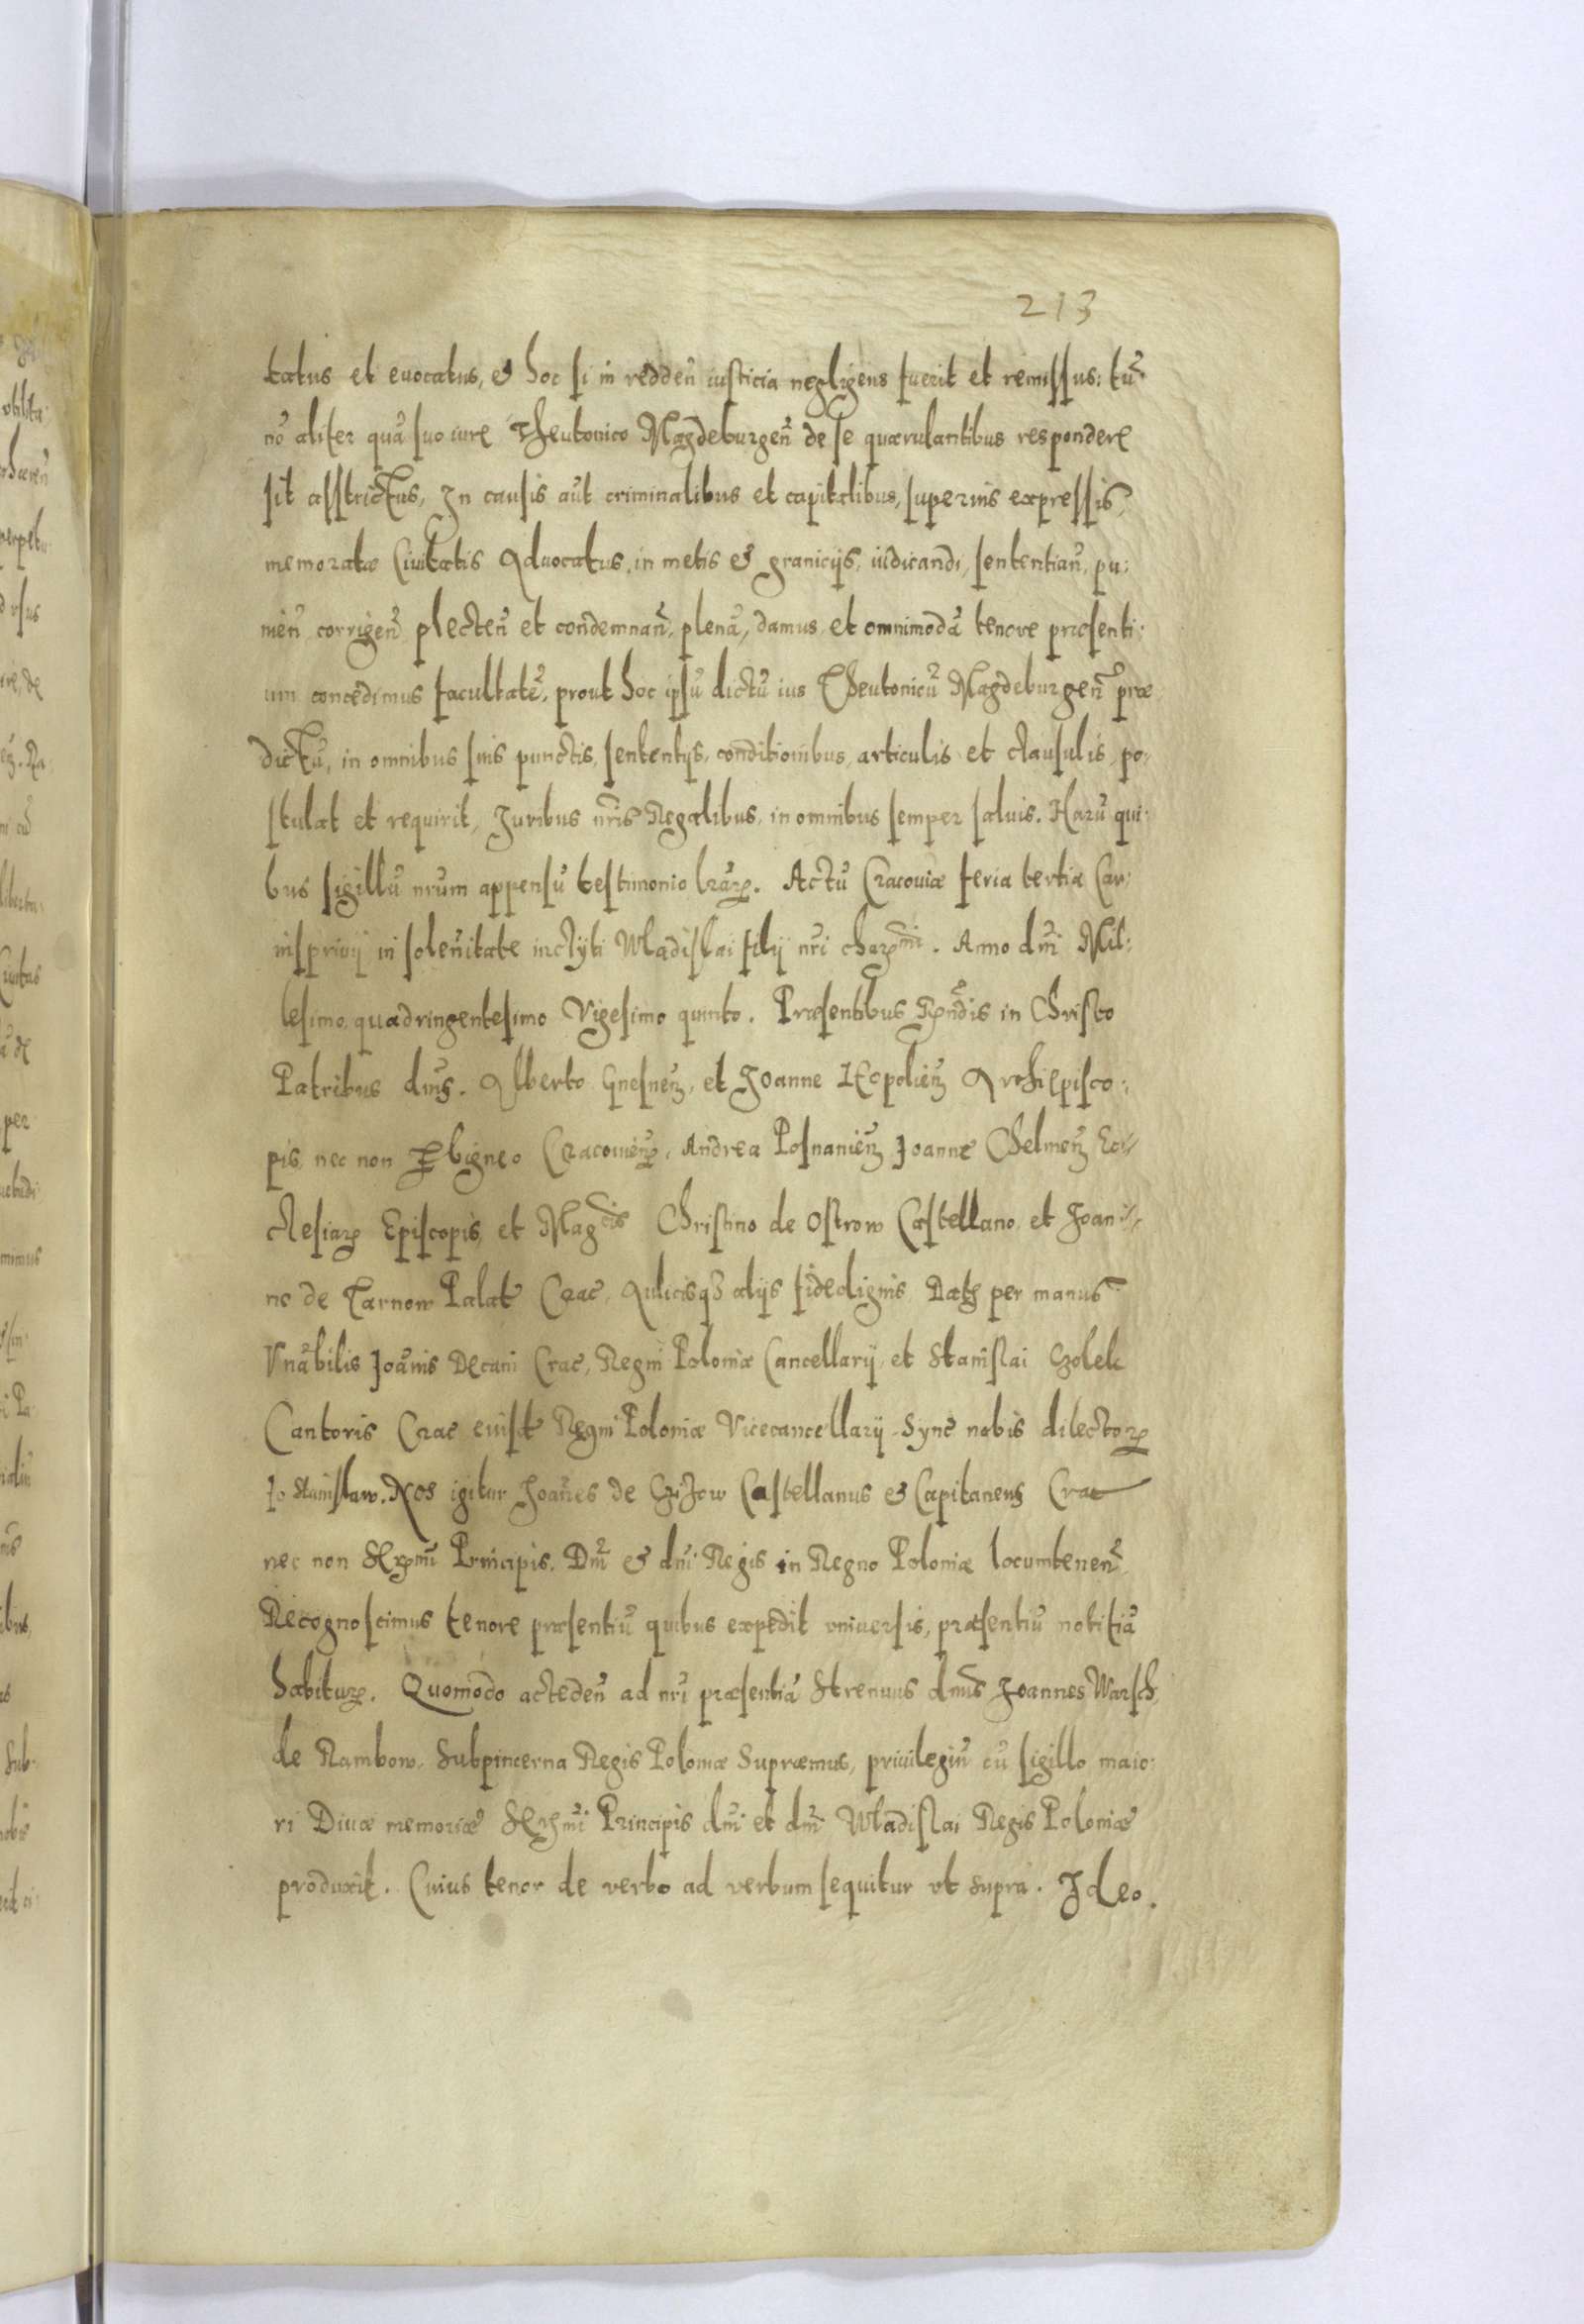 213
tatus et euocatus, & hoc si in redden̄ iusticia negligens fuerit et remissus: tū
nō aliter quā suo iure Theutonico Magdeburgen̄ de se quærulantibus respondere
sit asstrictus, In causis aūt criminalibus et capitalibus, superius expressis,
memoratæ Ciuitatis Aduocatus, in metis & granicijs, iūdicandi, sententian̄, pu:
nien̄ corrigen̄ plecten̄ et condemnan̄, plenā, damus et omnimodā tenore præsenti:
um concedimus facultatē, prout hoc ipsū dictū ius Theutonicū Magdeburgen̄ præ
dictū, in omnibus suis punctis, sententijs, conditionibus, articulis et clausulis, po:
stulat et requirit, Juribus nr̄is Regalibus, in omnibus semper saluis. Harū qui:
bus sigillū nrūm appensū testimonio lrāꝝ. Actū Cracouiæ feria tertia Car:
nispriuij in solen̄itate inclyti Wladislai filij nr̄i chaꝝmi. Anno dn̄i Mil:
lesimo, quadringentesimo Vigesimo quinto. Præsentibus Rn̄dis in Christo
Patribus dn̄is. Alberto Gnesnen̄, et Joanne Leopolien̄ Archiepisco:
pis, nec non Sbigneo Cracouien̄, Andrea Posnanien̄ Joanne Chelmen̄ Ec:
clesiaꝝ Episcopis, et Magcis Christino de Ostrow Castellano, et Joan:
ne de Tarnow Palat Crac, Aulicisqꝫ alijs fidedignis Dat per manus
Vnābilis Joānis Decani Crac, Regni Poloniæ Cancellarij, et Stanislai Czolek
Cantoris Crac eiusd Regni Poloniæ Vicecancellarij Sync nobis dilectoꝝ
Jo Stanislaw. Nos igitur Joānes de Czyzow Castellanus & Capitaneus Crac
nec non Seꝝmi Principis. Dn̄i & dn̄i Regis in Regno Poloniæ locumtenen̄
Recognoscimus tenore præsentiū quibus expedit vniuersis, præsentiū notitiā
habituꝝ. Quomodo acceden̄ ad nr̄i præsentiā Strenuus dn̄us Joannes Warsch,
de Rambow. Subpincerna Regis Poloniæ Supræmus, priuilegiū cū sigillo maio:
ri Diuæ memoriæ Seꝝmi Principis dn̄i et dn̄i Wladislai Regis Poloniæ
produxit. Cuius tenor de verbo ad verbum sequitur vt supra. Ideo.